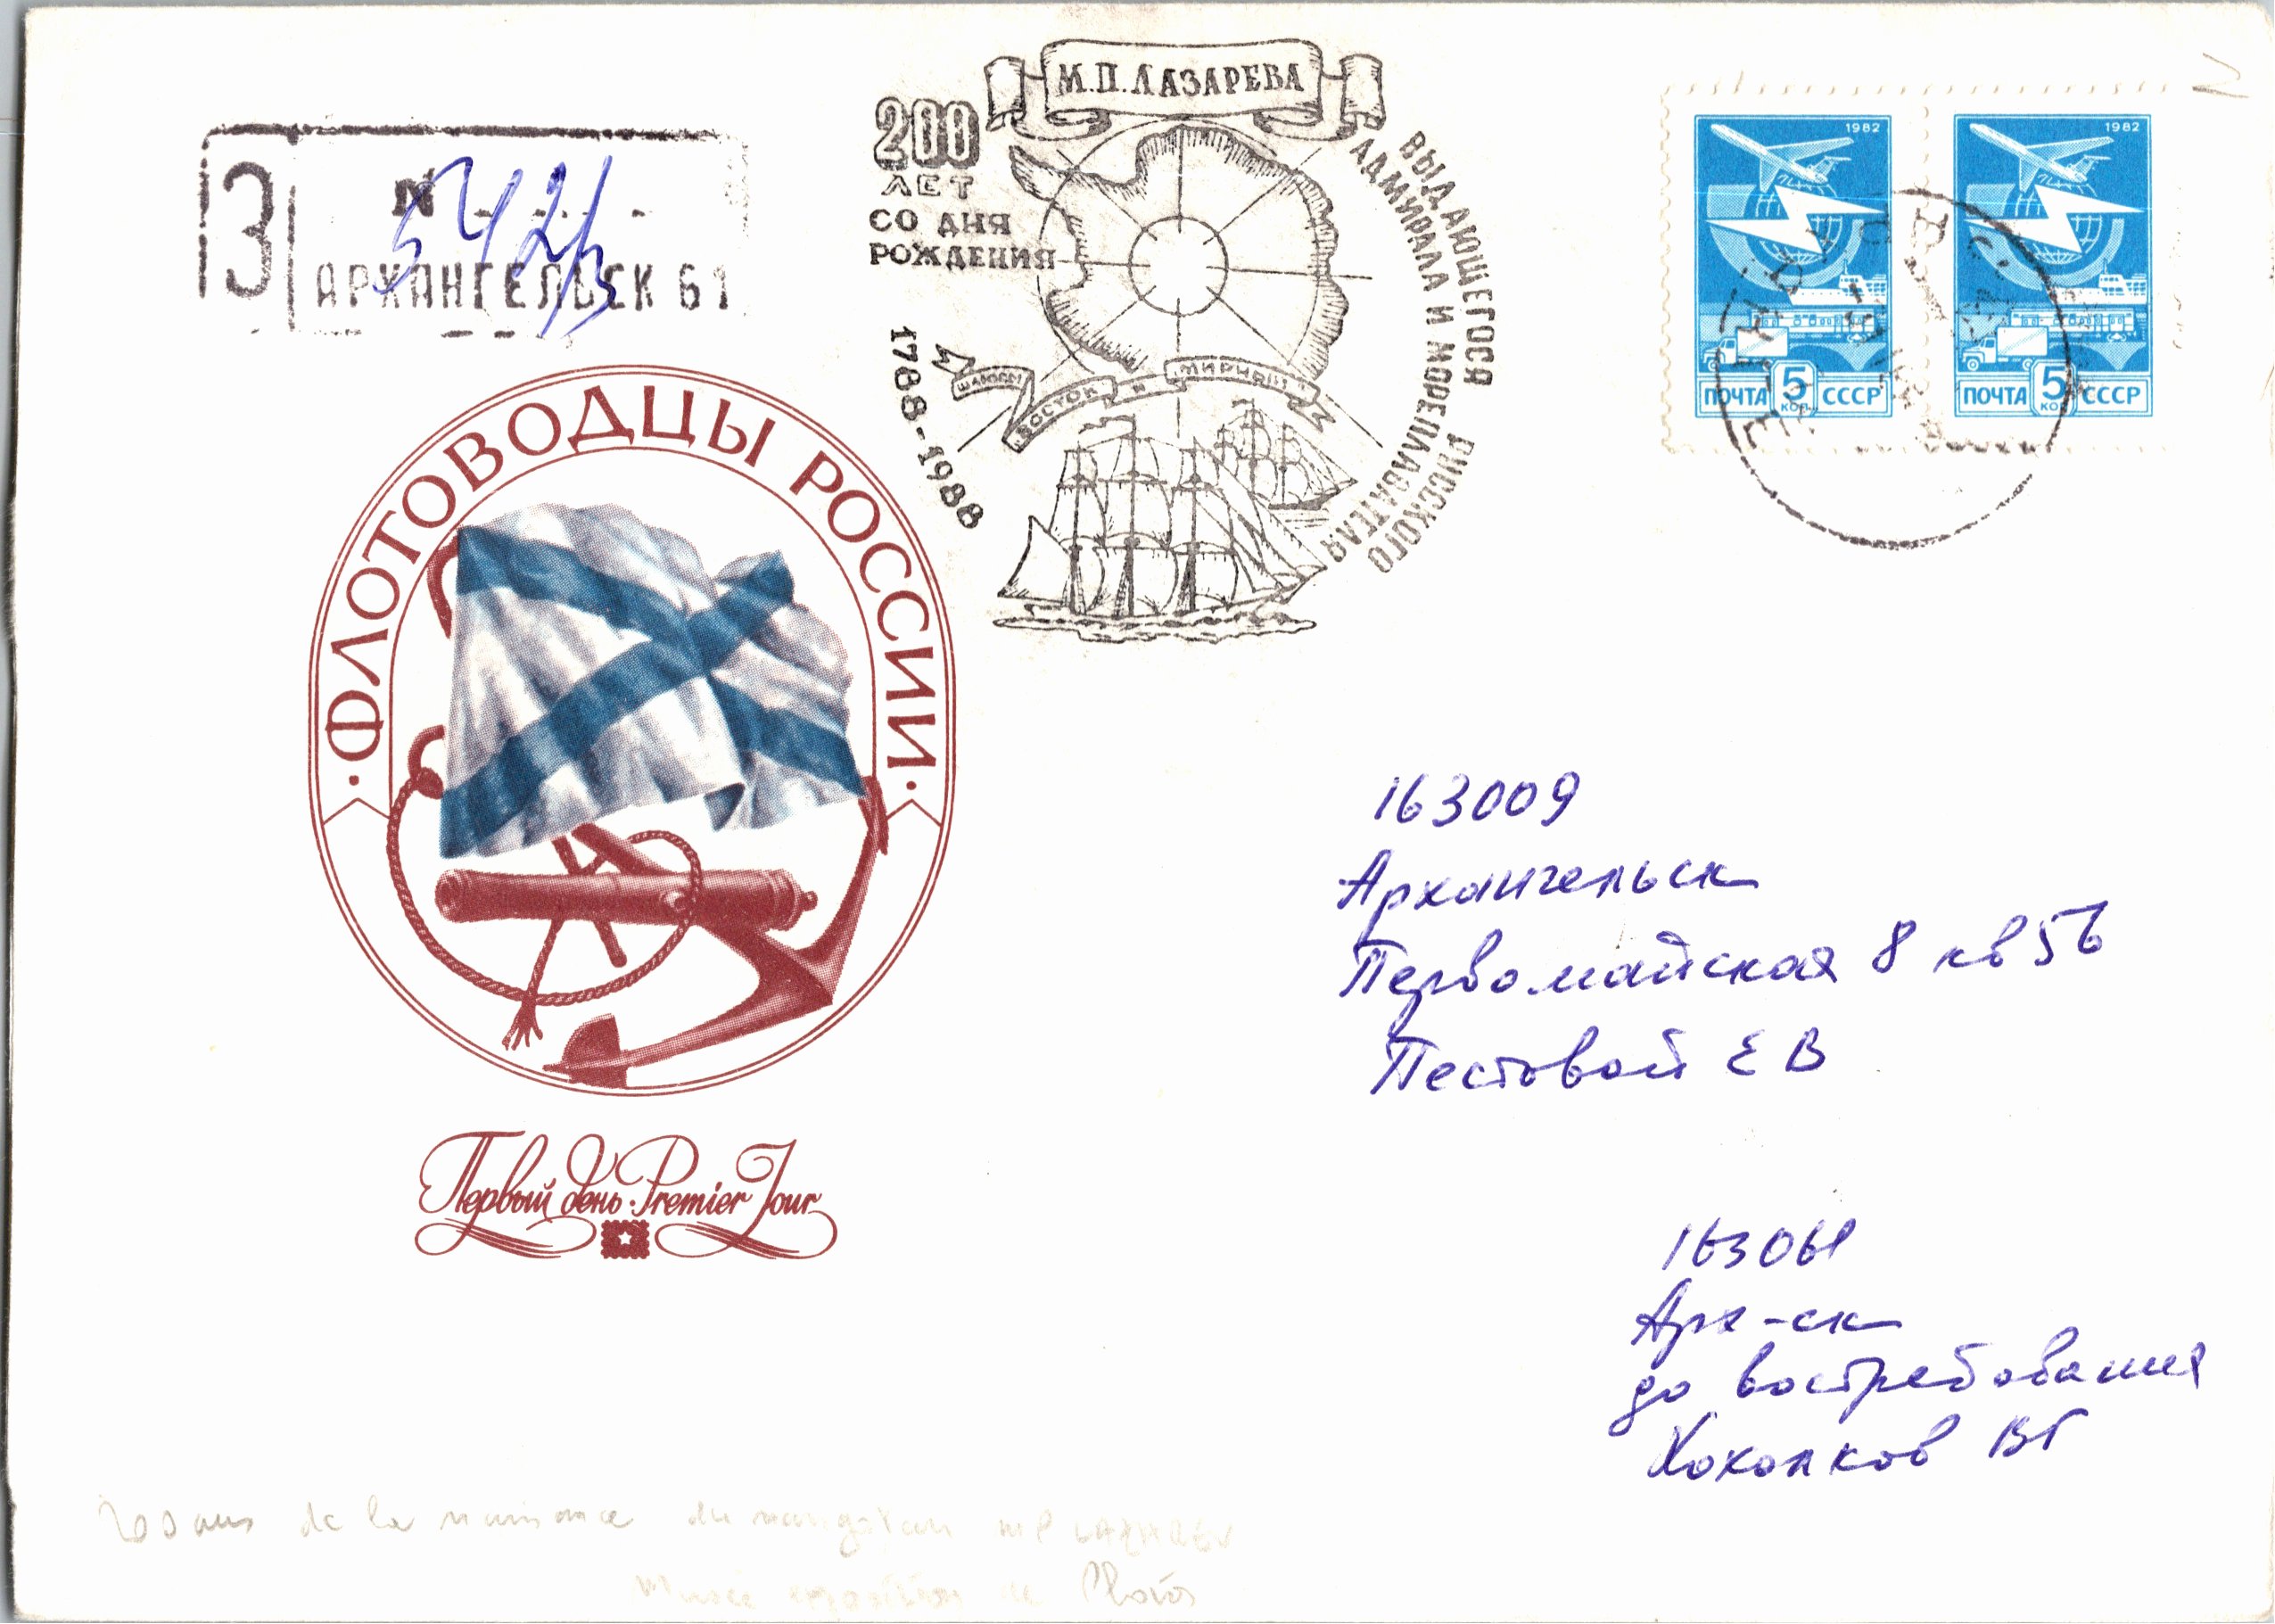 М.П.ЛАЗАРЕВА
200
ЛЕТ
СО ДНЯ
РОЖДЕНИЯ
1788-1988
ВЫДАЮЩЕГОСЯ РУССКОГО
АДМИРАЛА И МОРЕПЛАВАТЕЛЯ
ШЛЮПЫ
ВОСТОК И МИРНЫЙ
З
N 542/3
АРХАНГЕЛЬСК 61
1982
ПОЧТА 5 КОП СССР
1982
ПОЧТА 5 КОП СССР
ФЛОТОВОДЦЫ РОССИИ
Первый день · Premier Jour
163009
Архангельск
Первомайская 8 кв 56
Пестовой Е В
163061
Арх-ск
до востребования
Хохолков ВГ
200 ans de la naissance du MP LAZAREV
Musée de